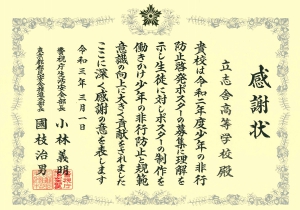 感謝状
立志舎高等学校 殿
貴校は令和二年度少年の非行
防止啓発ポスターの募集に理解を
示し生徒に対しポスターの制作を
働きかけ少年の非行防止と規範
意識の向上に大きく貢献をされました
ここに深く感謝の意を表します
令和三年三月一日
警視庁生活安全部長
小林義明
國枝治男